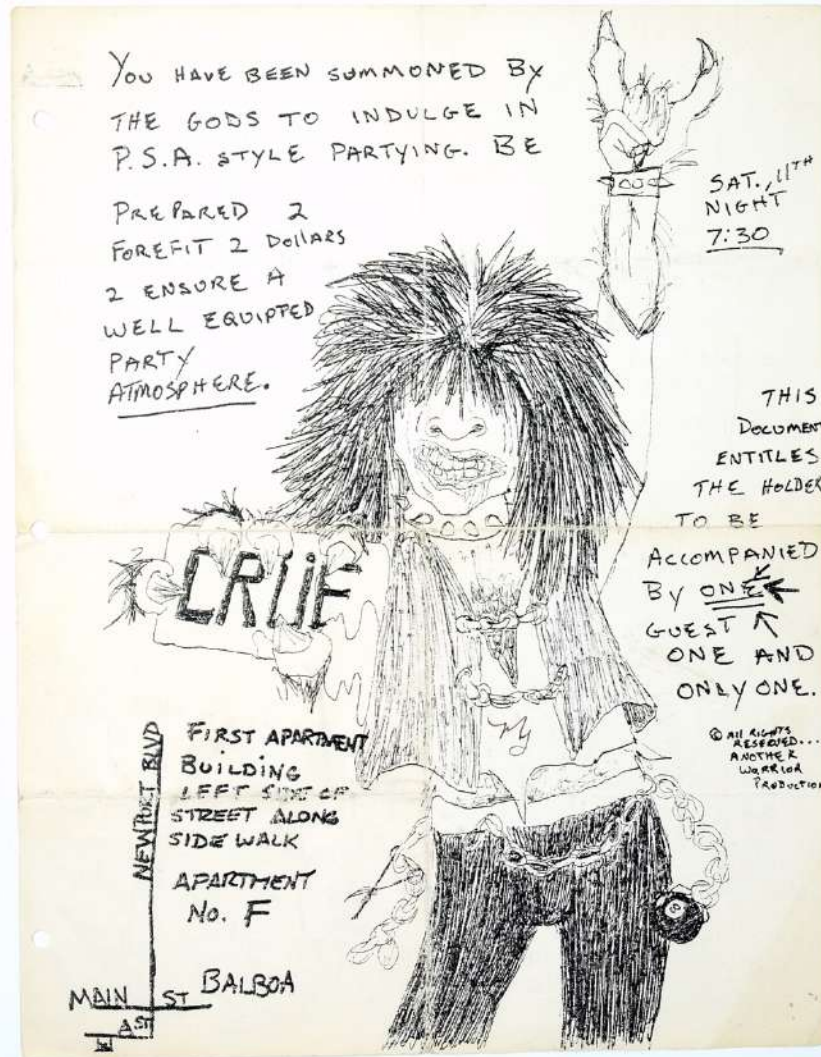 YOU HAVE BEEN SUMMONED BY
THE GODS TO INDULGE IN
P.S.A. STYLE PARTYING. BE
PREPARED 2
FOREFIT 2 DOLLARS
2 ENSURE A
WELL EQUIPTED
PARTY
ATMOSPHERE.
SAT., 11TH
NIGHT
7:30
THIS
DOCUMENT
ENTITLES
THE HOLDER
TO BE
ACCOMPANIED
BY ONE
GUEST
ONE AND
ONLY ONE.
© All RIGHTS
RESERVED...
ANOTHER
WARRIOR
PRODUCTION
CRÜE
FIRST APARTMENT
BUILDING
LEFT SIDE OF
STREET ALONG
SIDE WALK
APARTMENT
No. F
BALBOA
NEWPORT BLVD
MAIN ST
A ST
8